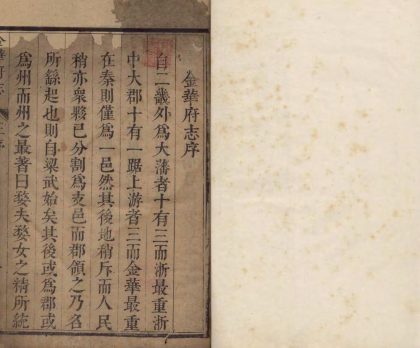 金華府志序
自二畿外為大藩者十有三而浙最重浙
中大郡十有一踞上游者三而金華最重
在秦則僅為一邑然其後地稍斥而人民
稍亦衆夥已分割為支邑而郡領之乃名
所繇起也則自梁武始矣其後或為郡或
為州而州之最著曰婺夫婺女之精所統
金華府志